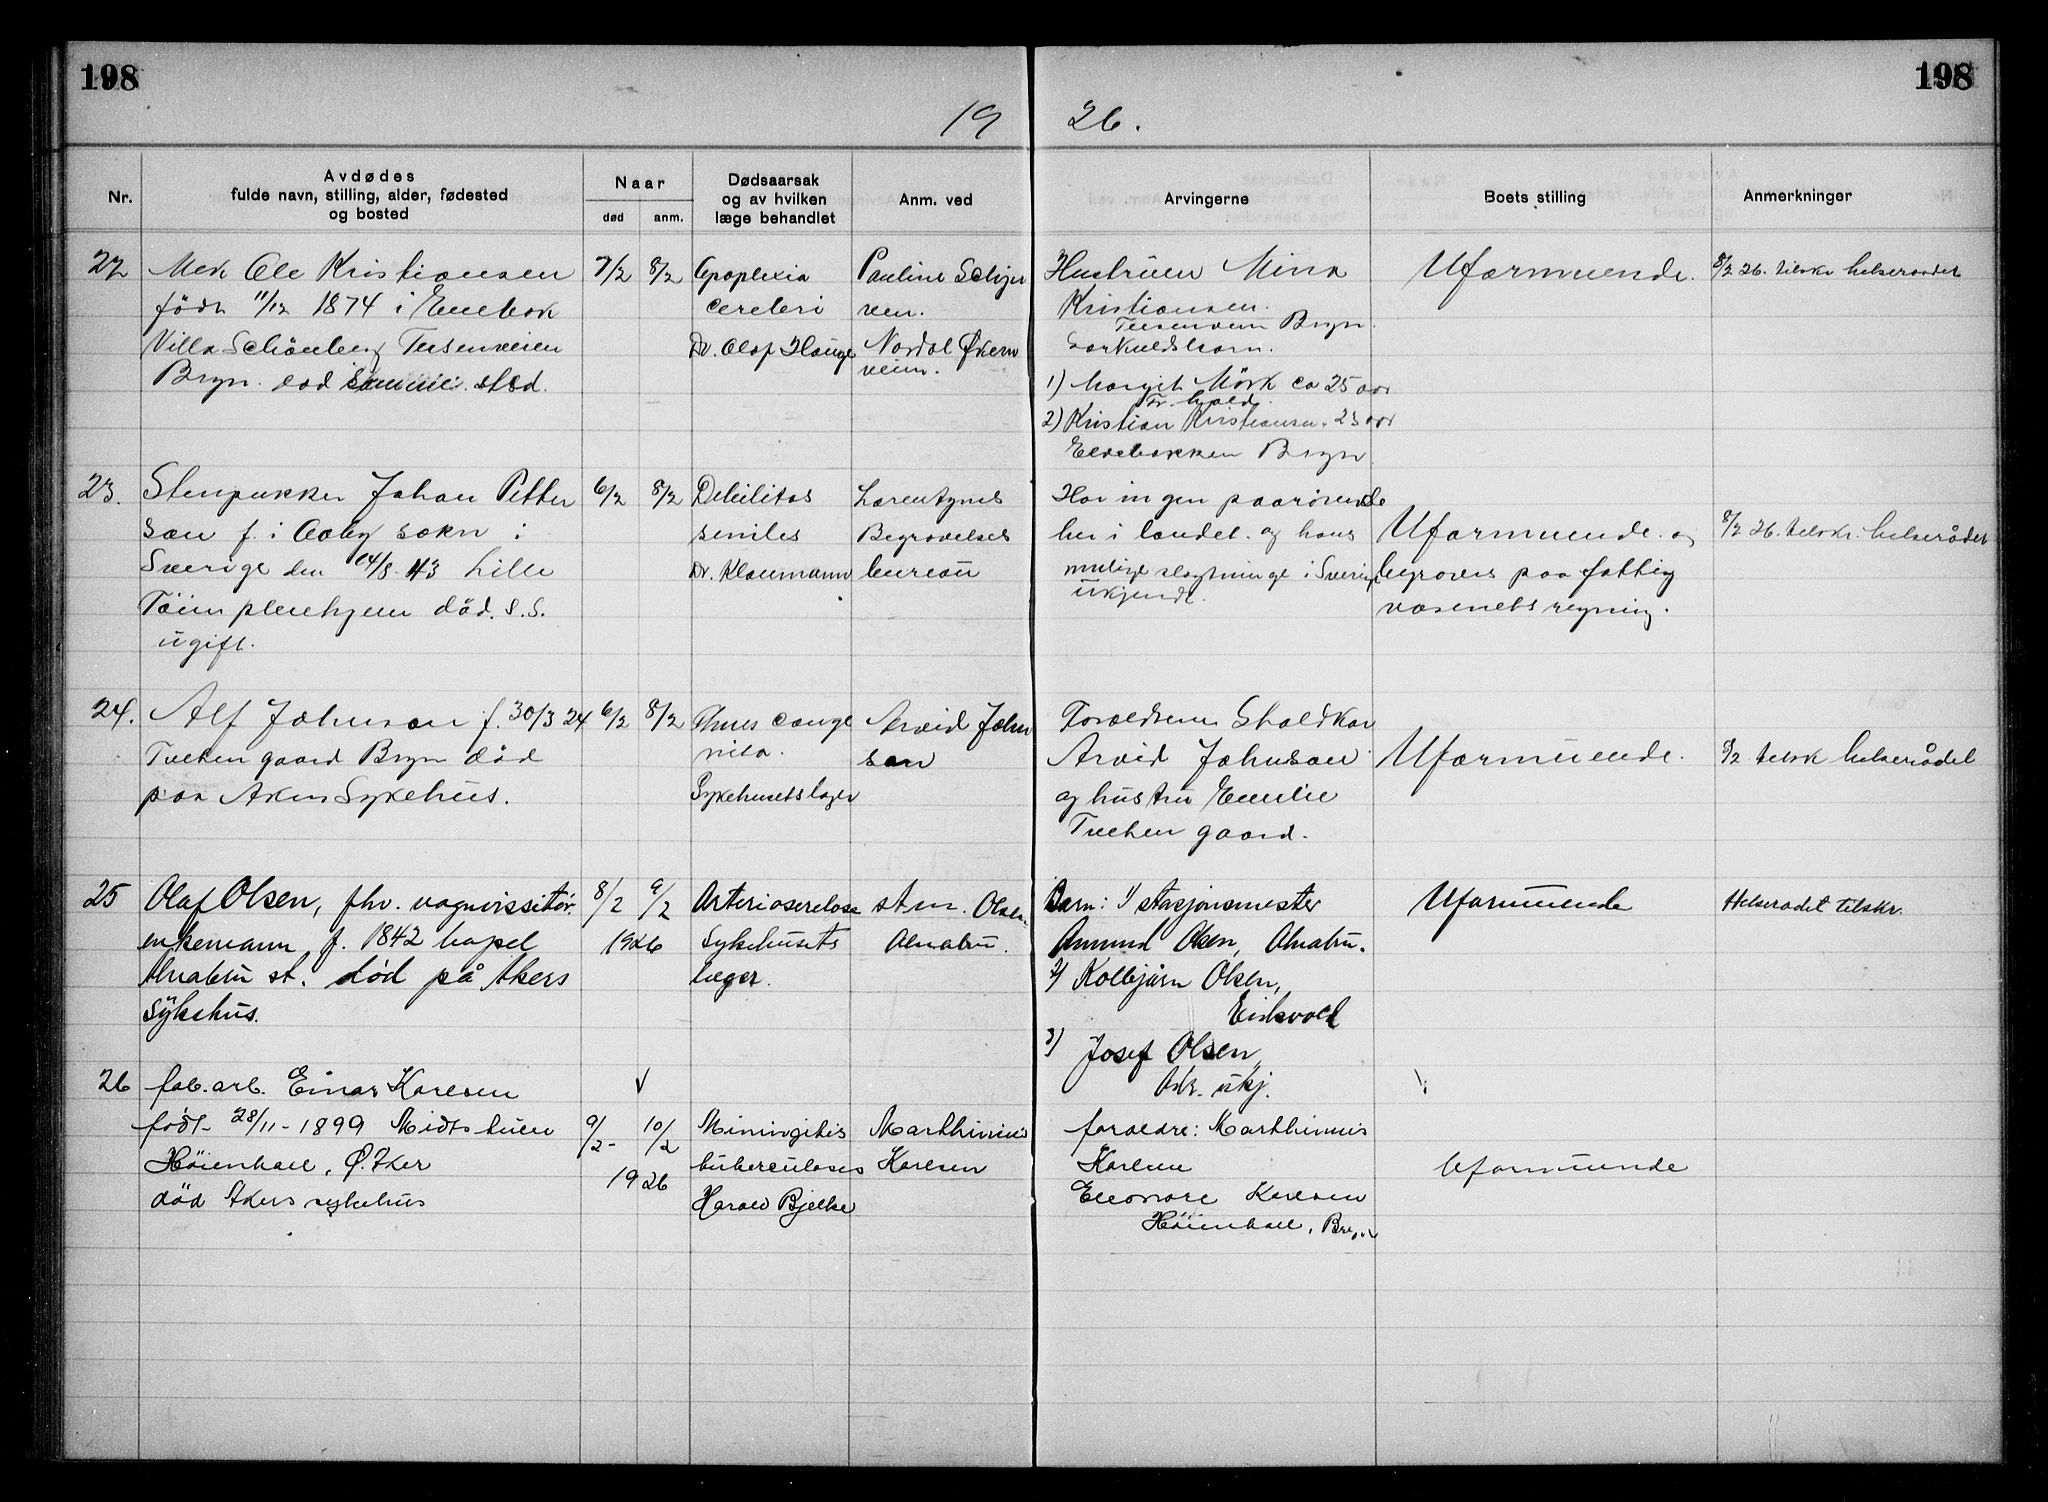 198
198
19 26.
Nr.
Avdødes
fulde navn, stilling, alder, fødested
og bosted
Naar
død
anm.
Dødsaarsak
og av hvilken
læge behandlet
Anm. ved
Arvingerne
Boets stilling
Anmerkninger
22
Mek Ole Kristiansen
født 11/12 1874 i Enebak
Villa Schönberg Teisenveien
Bryn. død samme sted.
7/2
8/2
Apoplexia
cerebri
Dr. Olaf Hauge
Pauline
Nordal Økern
veien.
Hustruen Mina
Kristiansen.
Teisenveien Bryn.
Særkuldsbarn.
1) Margit Mörk ca 25 aar
2) Kristian Kristiansen. 23 aar
Bryn
Uformuende.
8/2 26. tilskr helseraadet
23.
Stenpukker Johan Petter
son f. i Aaby sokn i
Sverige den 14/8-43 Lille
Töien pleiehjem död. S.S.
ugift.
6/2
8/2
Debilitas
seniles
Dr. Klaumann
Begravelses
bureau
Har ingen paarørende
her i landet. og hans
mulige slægtninge i Sverige
ukjendt.
Uformuende. og
begraves paa fattig
væsenets regning.
8/2 26. tilskr. helserådet
24.
Alf Johnson f. 30/3 24
Tveten gaard Bryn död
paa Akers Sykehus.
6/2
8/2
conge
nita.
Sykehusets læger
Arvid John
son
Forældrene
Arvid Johnson
og hustru Emilie
Tveten gaard.
Uformuende.
8/2 tilskr helserådet
25
Olaf Olsen, fhv. vognvissitør.
enkemann, f. 1842
Alnabru st. død på Akers
Sykehus.
8/2
9/2
1926
Arteriosclerose
Sykehusets
læger.
st.m. Olsen
Alnabru.
Barn: 1/ stasjonsmester
Amund Olsen, Alnabru.
2/ Kolbjørn Olsen,
Eidsvold
3/ Josef Olsen,
Adr. ukj.
Uformuende
Helserådet tilskr.
26
fab. arb. Einar Karlsen
født 28/11-1899 Midtstuen
Høienhall, Ø. Aker
död Akers sykehus
9/2-
10/2
1926
Miningitis
tuberculoses
Harald Bjelke
Marthinius
Karlsen
foreldre: Marthinius
Karlsen
Eleonore Karlsen
Høienhall, Bryn
Uformuende